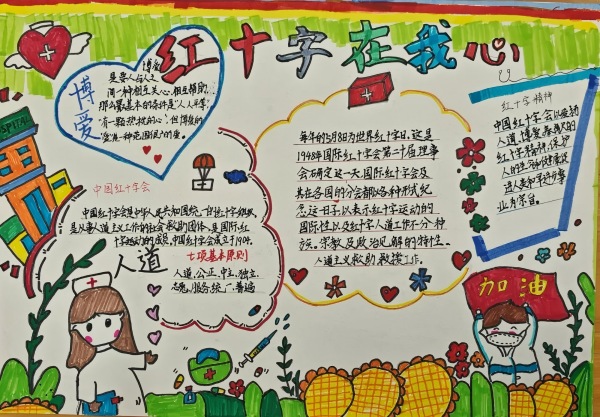 红十字在我心
HOSPITAL
博爱
博爱
是要人与人之
间一种相互关心、相互帮助,
那么最基本的条件是“人人平等,
有一颗热忱的心,但博爱的
爱,是一种范围很广的爱。
红十字精神
中国红十字会以发扬
人道、博爱、奉献的
红十字精神,保护
人的生命健康,促
进人类和平进步事
业为宗旨。
每年的5月8日为世界红十字日,这是
1948年国际红十字会第二十届理事
会研究定这一天国际红十字会及
其在各国的分会都以各种形式纪
念这一日子,以表示红十字运动的
国际性以及红十字人道工作不分种
族、宗教及政治见解的特性。
人道主义救助、救援工作。
中国红十字会
中国红十字会是中华人民共和国统一的红十字组织,
是从事人道主义工作的社会救助团体,是国际红
十字运动的成员,中国红十字会成立于1904。
七项基本原则
人道、公正、中立、独立、
志愿服务、统一、普遍
人道
加油